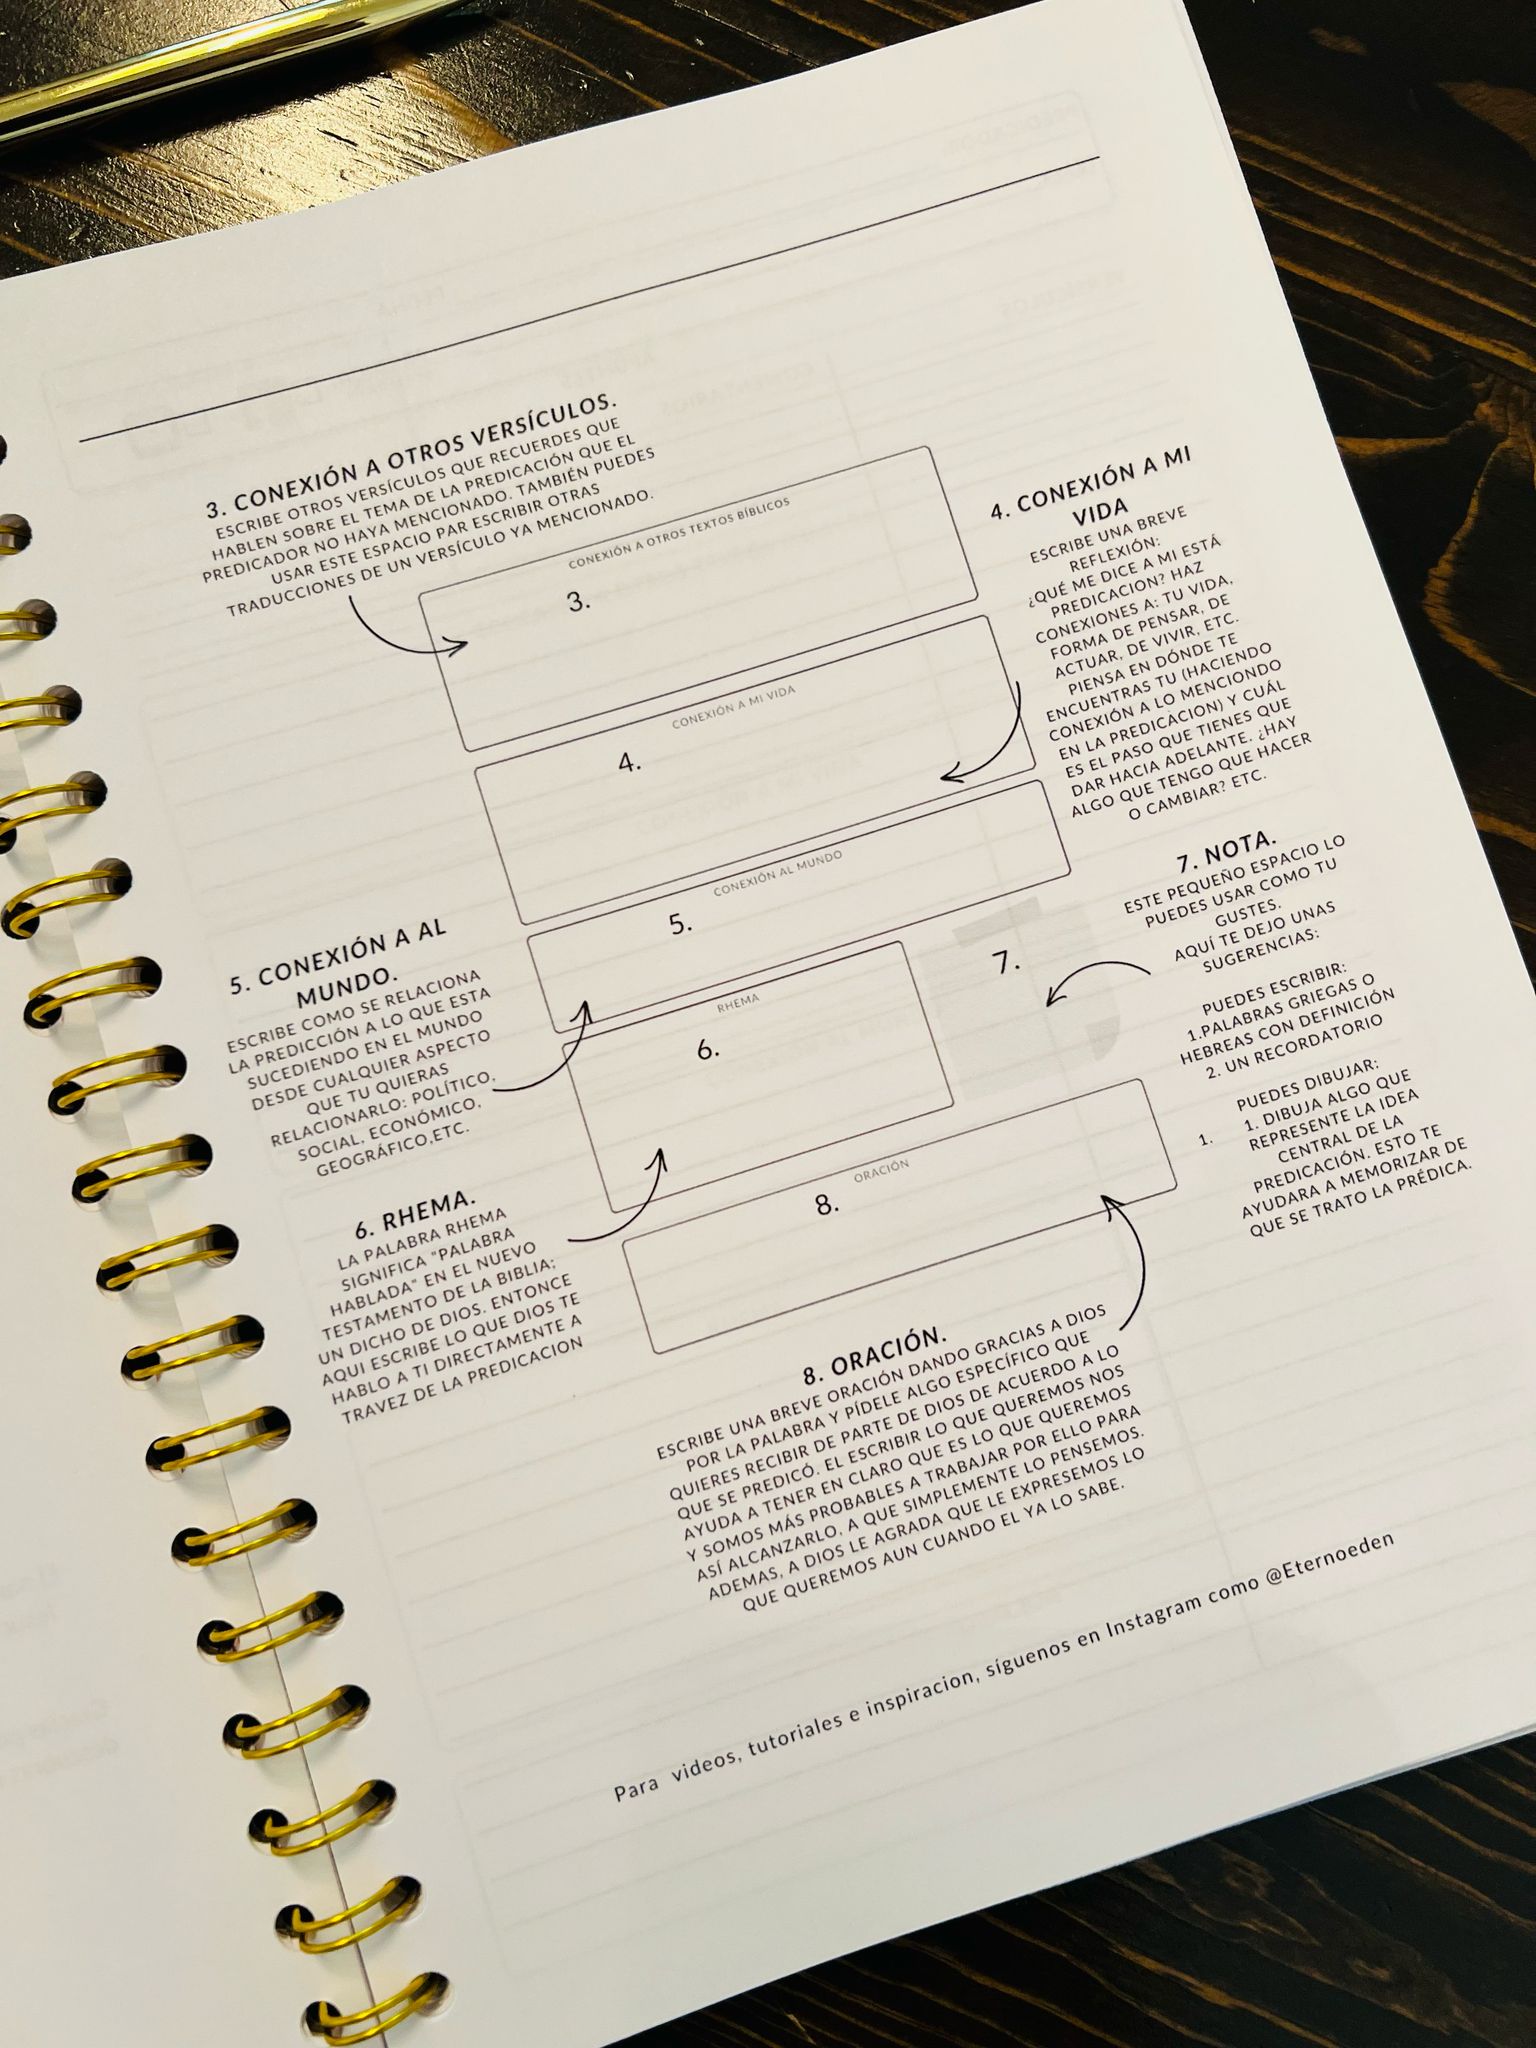 3. CONEXIÓN A OTROS VERSÍCULOS.
ESCRIBE OTROS VERSÍCULOS QUE RECUERDES QUE
HABLEN SOBRE EL TEMA DE LA PREDICACIÓN QUE EL
PREDICADOR NO HAYA MENCIONADO. TAMBIÉN PUEDES
USAR ESTE ESPACIO PAR ESCRIBIR OTRAS
TRADUCCIONES DE UN VERSÍCULO YA MENCIONADO.
CONEXIÓN A OTROS TEXTOS BÍBLICOS
3.
4. CONEXIÓN A MI
VIDA
ESCRIBE UNA BREVE
REFLEXIÓN:
¿QUÉ ME DICE A MI ESTÁ
PREDICACION? HAZ
CONEXIONES A: TU VIDA,
FORMA DE PENSAR, DE
ACTUAR, DE VIVIR, ETC.
PIENSA EN DÓNDE TE
ENCUENTRAS TU (HACIENDO
CONEXIÓN A LO MENCIONDO
EN LA PREDICACION) Y CUÁL
ES EL PASO QUE TIENES QUE
DAR HACIA ADELANTE. ¿HAY
ALGO QUE TENGO QUE HACER
O CAMBIAR? ETC.
CONEXIÓN A MI VIDA
4.
CONEXIÓN AL MUNDO
5.
5. CONEXIÓN A AL
MUNDO.
ESCRIBE COMO SE RELACIONA
LA PREDICCIÓN A LO QUE ESTA
SUCEDIENDO EN EL MUNDO
DESDE CUALQUIER ASPECTO
QUE TU QUIERAS
RELACIONARLO: POLÍTICO,
SOCIAL, ECONÓMICO,
GEOGRÁFICO,ETC.
RHEMA
6.
6. RHEMA.
LA PALABRA RHEMA
SIGNIFICA "PALABRA
HABLADA" EN EL NUEVO
TESTAMENTO DE LA BIBLIA;
UN DICHO DE DIOS. ENTONCE
AQUI ESCRIBE LO QUE DIOS TE
HABLO A TI DIRECTAMENTE A
TRAVEZ DE LA PREDICACION
7.
7. NOTA.
ESTE PEQUEÑO ESPACIO LO
PUEDES USAR COMO TU
GUSTES.
AQUÍ TE DEJO UNAS
SUGERENCIAS:
PUEDES ESCRIBIR:
1.PALABRAS GRIEGAS O
HEBREAS CON DEFINICIÓN
2. UN RECORDATORIO
PUEDES DIBUJAR:
1. 1. DIBUJA ALGO QUE
REPRESENTE LA IDEA
CENTRAL DE LA
PREDICACIÓN. ESTO TE
AYUDARA A MEMORIZAR DE
QUE SE TRATO LA PRÉDICA.
ORACIÓN
8.
8. ORACIÓN.
ESCRIBE UNA BREVE ORACIÓN DANDO GRACIAS A DIOS
POR LA PALABRA Y PÍDELE ALGO ESPECÍFICO QUE
QUIERES RECIBIR DE PARTE DE DIOS DE ACUERDO A LO
QUE SE PREDICÓ. EL ESCRIBIR LO QUE QUEREMOS NOS
AYUDA A TENER EN CLARO QUE ES LO QUE QUEREMOS
Y SOMOS MÁS PROBABLES A TRABAJAR POR ELLO PARA
ASÍ ALCANZARLO, A QUE SIMPLEMENTE LO PENSEMOS.
ADEMAS, A DIOS LE AGRADA QUE LE EXPRESEMOS LO
QUE QUEREMOS AUN CUANDO EL YA LO SABE.
Para videos, tutoriales e inspiracion, síguenos en Instagram como @Eternoeden